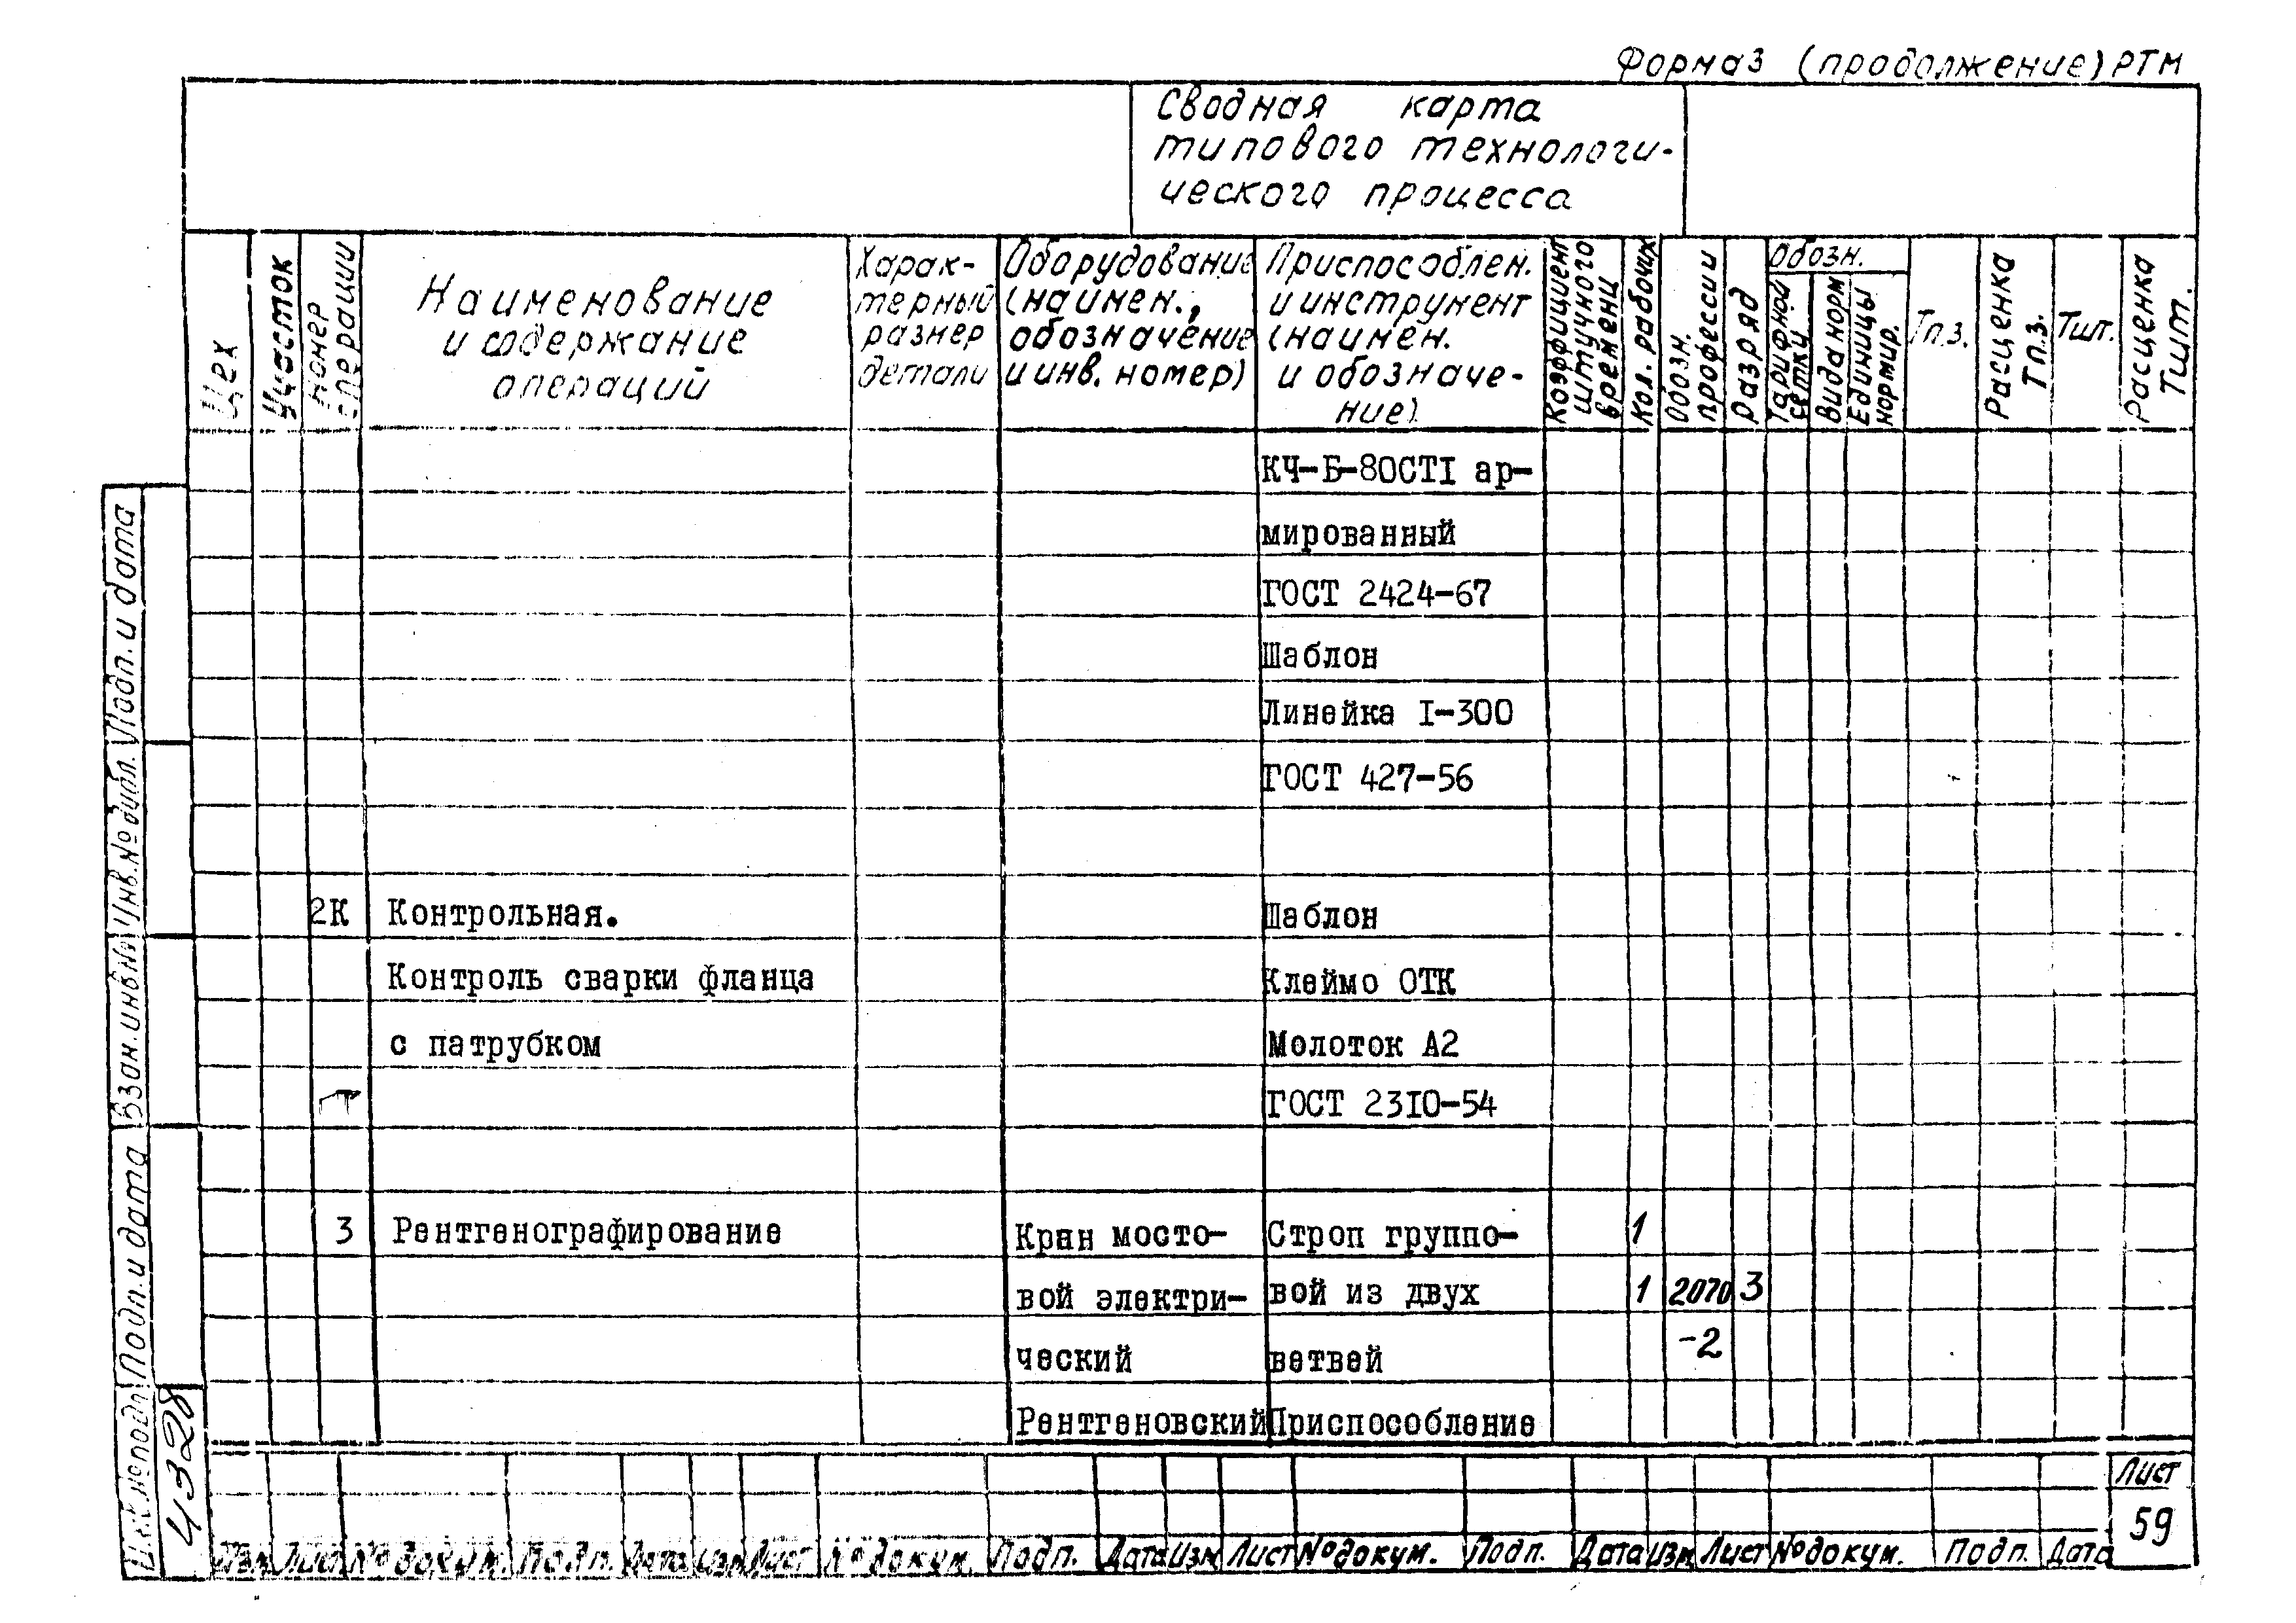 Форма 3 (продолжение) РТМ
Сводная карта
типового технологи-
ческого процесса
Цех
Участок
Номер
операции
Наименование
и содержание
операций
Харак-
терный
размер
детали
Оборудование
(наимен.,
обозначение
и инв. номер)
Приспособлен.
и инструмент
(наимен.
и обозначе-
ние).
Коэффициент
штучного
времени
Кол. рабочих
Обозн.
профессии
Разряд
Обозн.
Тарифной
сетки
Вида норм
Единицы
нормир.
Тп.з.
Расценка
Тп.з.
Тшт.
Расценка
Тшт.
КЧ-Б-80СТI ар-
мированный
ГОСТ 2424-67
Шаблон
Линейка I-300
ГОСТ 427-56
2К Контрольная. Шаблон
Контроль сварки фланца Клеймо ОТК
с патрубком Молоток А2
ГОСТ 23I0-54
3 Рентгенографирование Кран мосто- Строп группо- 1
вой электри- вой из двух 1 2070 3
ческий ветвей -2
Рентгеновский Приспособление
Подп. и дата
Инв. № дубл.
Взам. инв №
Подп. и дата
Инв № подл
4328
Лист
59
Изм Лист № докум. Подп. Дата Изм Лист № докум. Подп. Дата Изм Лист № докум. Подп. Дата Изм Лист № докум. Подп. Дата